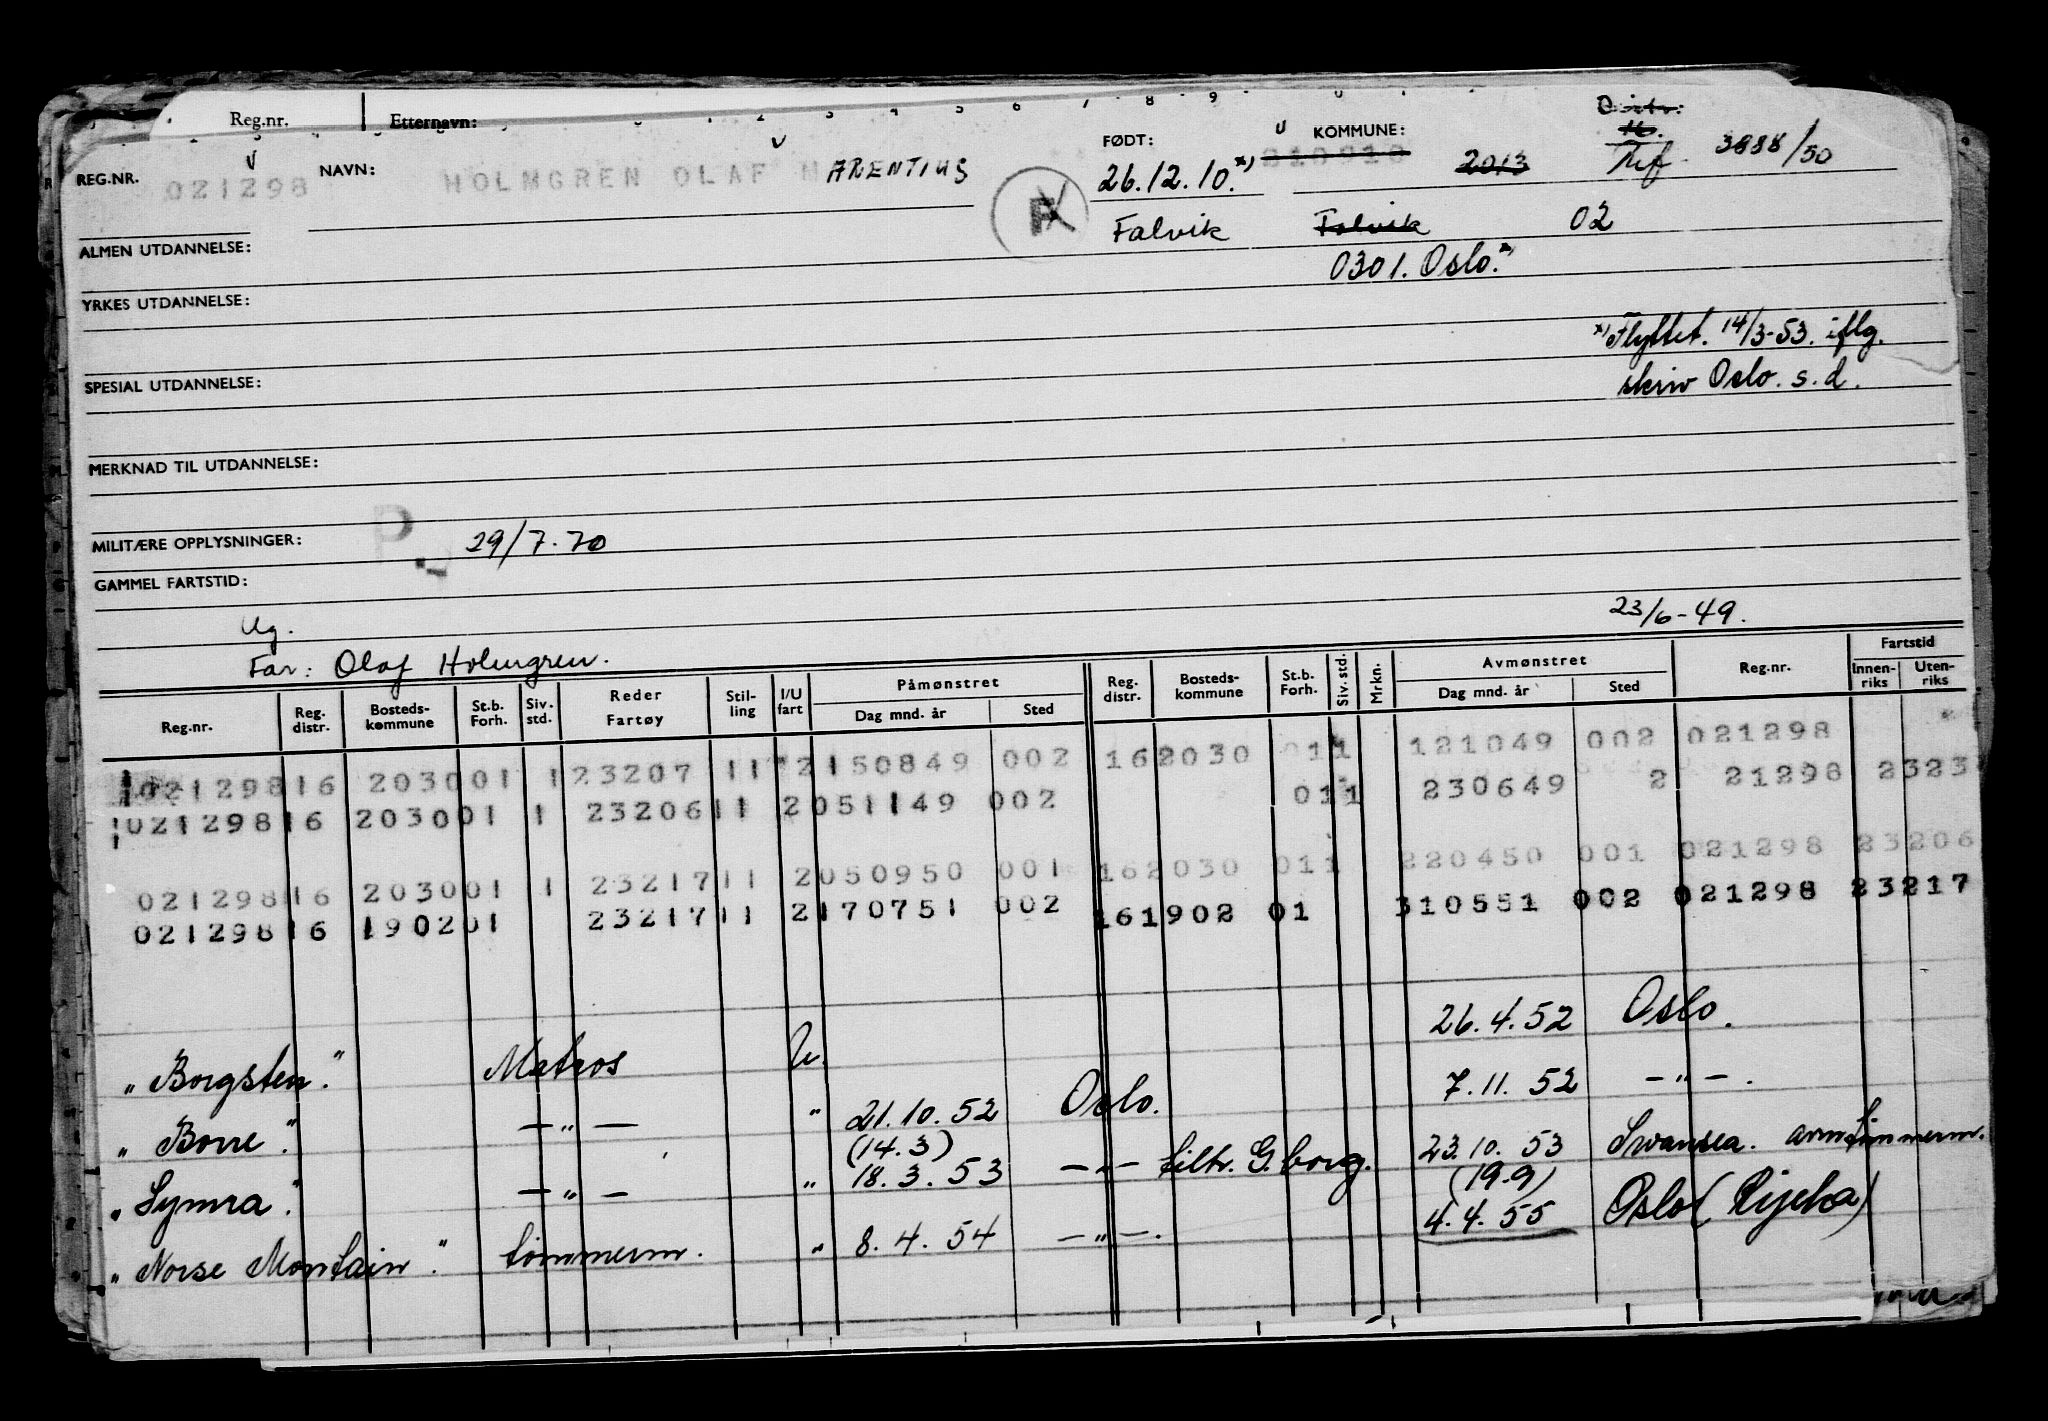 Reg.nr. Etternavn:
REG.NR. 021298 NAVN: HOLMGREN OLAF ARENTIUS FØDT: 26.12.10. x) KOMMUNE: 2013 3888/50
Falvik Falvik 02
ALMEN UTDANNELSE:
0301. Oslo. x)
YRKES UTDANNELSE:
x) Flyttet. 14/3-53. iflg.
skriv Oslo. s.d.
SPESIAL UTDANNELSE:
MERKNAD TIL UTDANNELSE:
MILITÆRE OPPLYSNINGER: P. 29/7.70
GAMMEL FARTSTID:
Ug. 23/6-49.
Far: Olaf Holmgren.
Reg.nr. Reg. distr. Bosteds-kommune St.b. Forh. Siv. std. Reder Fartøy Stil-ling I/U fart Påmønstret Dag mnd. år Sted Reg. distr. Bosteds-kommune St.b. Forh. Siv. std. Mrkn. Avmønstret Dag mnd. år Sted Reg.nr. Fartstid Innen-riks Uten-riks
021298 16 2030 01 1 23207 11 2 150849 002 16 2030 01 1 121049 002 021298
021298 16 2030 01 1 23206 11 2 051149 002 01 1 230649 2 21298 2323
021298 16 2030 01 1 23217 11 2 050950 001 16 2030 01 1 220450 001 021298 23206
021298 16 1902 01 23217 11 2 170751 002 16 1902 01 310551 002 021298 23217
"Borgsten." Matros U. 26.4.52 Oslo.
"Borre". —"— " 21.10.52 Oslo. 7.11.52 —"—.
"Lymra". —"— " (14.3) 18.3.53 —"— tiltr. G.borg. 23.10.53 (19.9) Swansea. avm tømmerm.
"Norse Montain". tømmerm. " 8.4.54 —"—. 4.4.55 Oslo (Rijeka)